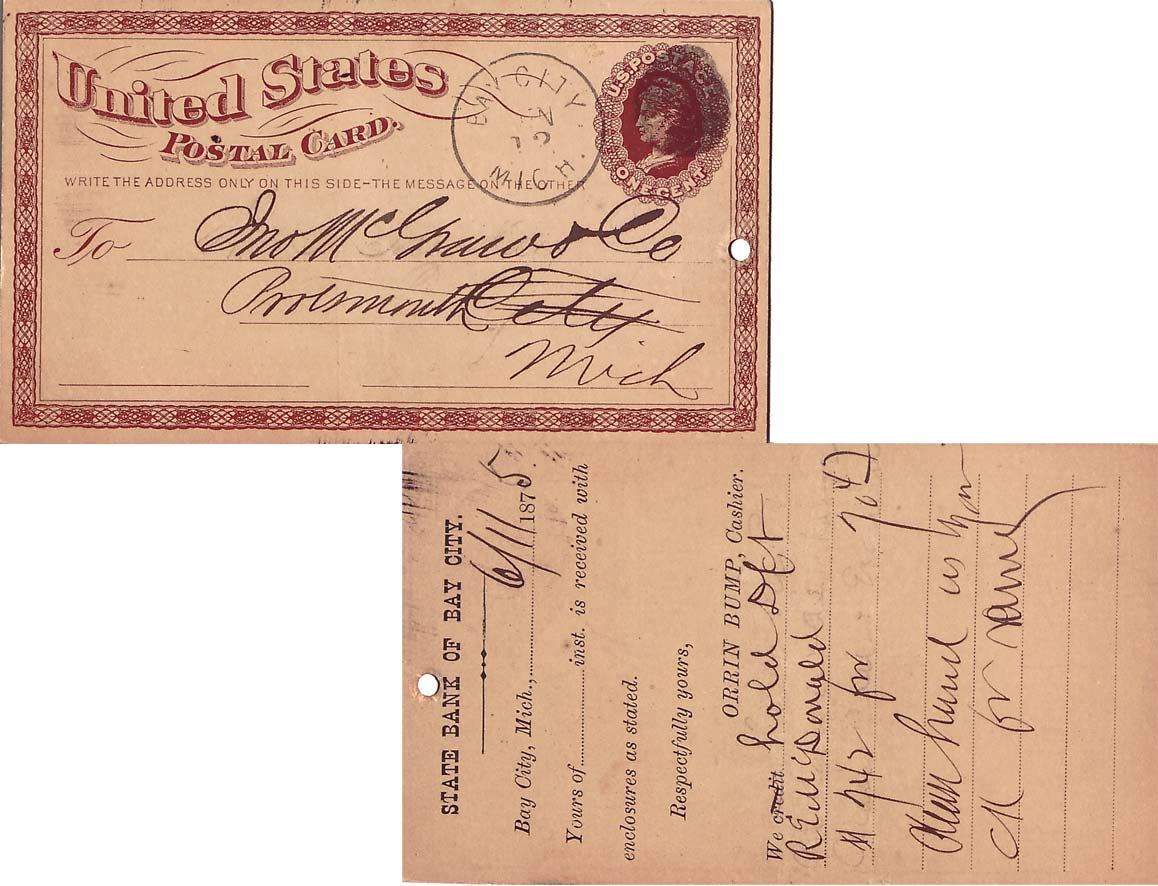 United States
POSTAL CARD.
WRITE THE ADDRESS ONLY ON THIS SIDE-THE MESSAGE ON THE OTHER
BAY CITY
MICH.
U.S. POSTAGE
ONE CENT
To Jno McGraw & Co
Portsmouth City
Mich
STATE BANK OF BAY CITY.
Bay City, Mich., 6/11 1875.
Yours of inst. is received with
enclosures as stated.
Respectfully yours,
ORRIN BUMP, Cashier.
We credit hold Dft
R E McDonald
# 742 for
Please hand us
ck for same